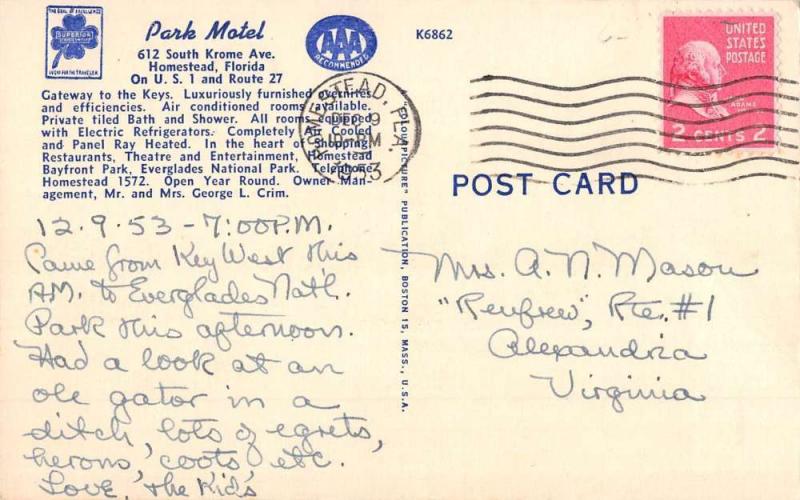 THE SEAL OF EXCELLENCE
SUPERIOR
Park Motel
612 South Krome Ave.
Homestead, Florida
On U. S. 1 and Route 27
AAA
RECOMMENDED
K6862
Gateway to the Keys. Luxuriously furnished overnites
and efficiencies. Air conditioned rooms available.
Private tiled Bath and Shower. All rooms equipped
with Electric Refrigerators. Completely Air Cooled
and Panel Ray Heated. In the heart of Shopping,
Restaurants, Theatre and Entertainment, Homestead
Bayfront Park, Everglades National Park. Telephone
Homestead 1572. Open Year Round. Owner Man-
agement, Mr. and Mrs. George L. Crim.
HOMESTEAD, FLA.
DEC 9
PM
1953
UNITED
STATES
POSTAGE
ADAMS
2 CENTS 2
"COLOURPICTURE" PUBLICATION, BOSTON 15, MASS., U.S.A.
POST CARD
12.9.53 - 7:00 P.M.
Came from Key West this
A.M. to Everglades Nat'l.
Park this afternoon.
Had a look at an
ole gator in a
ditch, lots of egrets,
herons, coots etc.
Love, the Kids
Mrs. A. N. Mason
"Renfrew", Rte. #1
Alexandria
Virginia